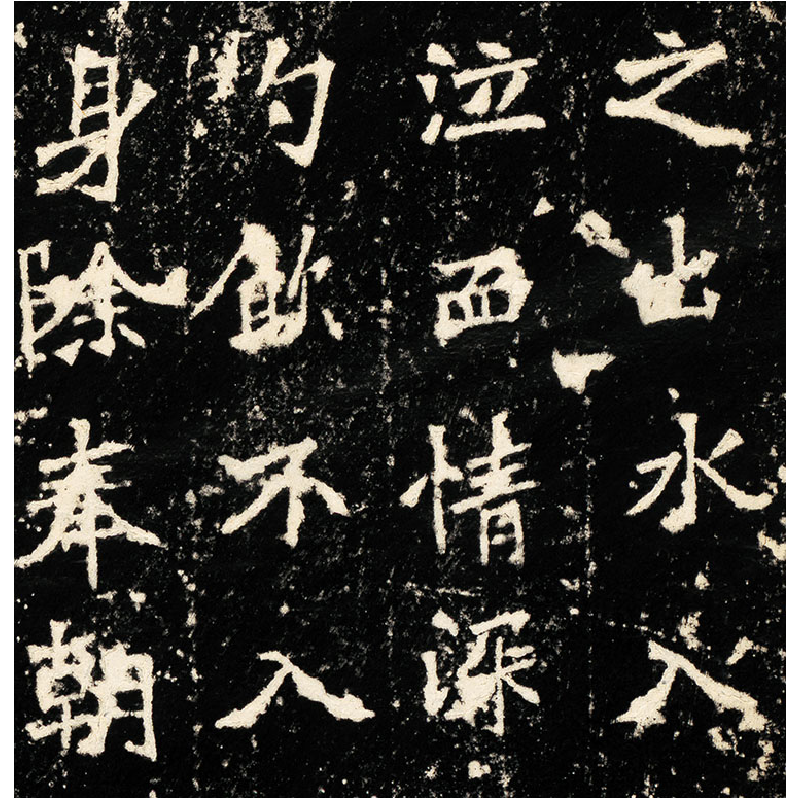 之出水入
泣血情深
勺飲不入
身除奉朝